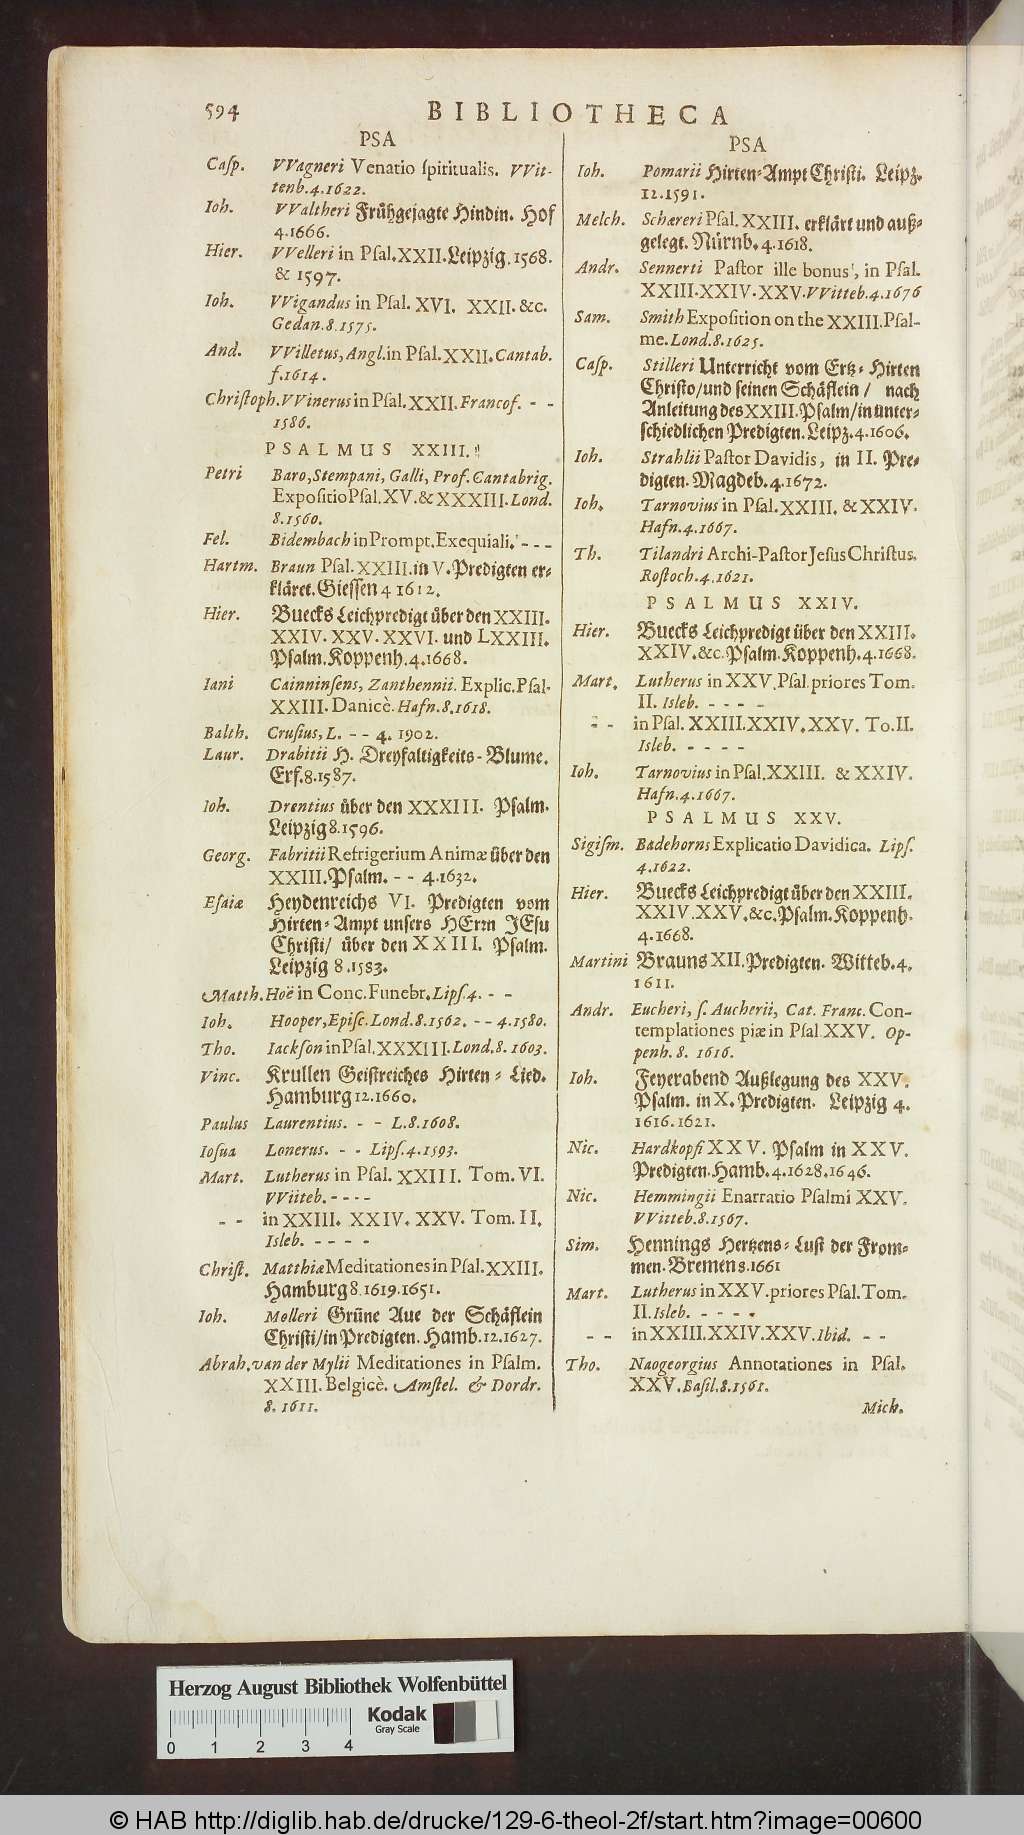 594 BIBLIOTHECA
PSA
Caſp. VVagneri Venatio ſpiritualis. VVit-
tenb. 4. 1622.
Ioh. VValtheri Frühgejagte Hindin. Hof
4. 1666.
Hier. VVelleri in Pſal. XXII. Leipzig, 1568.
& 1597.
Ioh. VVigandus in Pſal. XVI. XXII. &c.
Gedan. 8. 1575.
And. VVilletus, Angl. in Pſal. XXII. Cantab.
f. 1614.
Chriſtoph. VVinerus in Pſal. XXII. Francof. - -
1586.
PSALMUS XXIII.
Petri Baro, Stempani, Galli, Prof. Cantabrig.
Expoſitio Pſal. XV. & XXXIII. Lond.
8. 1560.
Fel. Bidembach in Prompt. Exequiali. - - -
Hartm. Braun Pſal. XXIII. in V. Predigten er-
kläret. Gieſſen 4 1612.
Hier. Buecks Leichpredigt über den XXIII.
XXIV. XXV. XXVI. und LXXIII.
Pſalm. Koppenh. 4. 1668.
Iani Cainninſens, Zanthennii. Explic. Pſal-
XXIII. Danicè. Hafn. 8. 1618.
Balth. Cruſius, L. - - 4. 1902.
Laur. Drabitii H. Dreyfaltigkeits-Blume.
Erf. 8. 1587.
Ioh. Drentius über den XXXIII. Pſalm.
Leipzig 8. 1596.
Georg. Fabritii Refrigerium Animæ über den
XXIII. Pſalm. - - 4. 1632.
Eſaiæ Heydenreichs VI. Predigten vom
Hirten-Ampt unſers HErrn JEſu
Chriſti/ über den XXIII. Pſalm.
Leipzig 8. 1583.
Matth. Hoë in Conc. Funebr. Lipſ. 4. - -
Ioh. Hooper, Epiſc. Lond. 8. 1562. - - 4. 1580.
Tho. Iackſon in Pſal. XXXIII. Lond. 8. 1603.
Vinc. Krullen Geiſtreiches Hirten-Lied.
Hamburg 12. 1660.
Paulus Laurentius. - - L. 8. 1608.
Ioſua Lonerus. - - Lipſ. 4. 1593.
Mart. Lutherus in Pſal. XXIII. Tom. VI.
VViiteb. - - - -
- - in XXIII. XXIV. XXV. Tom. II.
Isleb. - - - -
Chriſt. Matthiæ Meditationes in Pſal. XXIII.
Hamburg 8. 1619. 1651.
Ioh. Molleri Grüne Aue der Schäflein
Chriſti/ in Predigten. Hamb. 12. 1627.
Abrah. van der Mylii Meditationes in Pſalm.
XXIII. Belgicè. Amſtel. & Dordr.
8. 1611.
PSA
Ioh. Pomarii Hirten-Ampt Chriſti. Leipz.
12. 1591.
Melch. Schæreri Pſal. XXIII. erklärt und auß-
gelegt. Nürnb. 4. 1618.
Andr. Sennerti Paſtor ille bonus, in Pſal.
XXIII. XXIV. XXV. VVitteb. 4. 1676
Sam. Smith Expoſition on the XXIII. Pſal-
me. Lond. 8. 1625.
Caſp. Stilleri Unterricht vom Ertz-Hirten
Chriſto/ und ſeinen Schäflein/ nach
Anleitung des XXIII. Pſalm/ in unter-
ſchiedlichen Predigten. Leipz. 4. 1606.
Ioh. Strahlii Paſtor Davidis, in II. Pre-
digten. Magdeb. 4. 1672.
Ioh. Tarnovius in Pſal. XXIII. & XXIV.
Hafn. 4. 1667.
Th. Tilandri Archi-Paſtor Jeſus Chriſtus.
Roſtoch. 4. 1621.
PSALMUS XXIV.
Hier. Buecks Leichpredigt über den XXIII.
XXIV. &c. Pſalm. Koppenh. 4. 1668.
Mart. Lutherus in XXV. Pſal. priores Tom.
II. Isleb. - - - -
- - in Pſal. XXIII. XXIV. XXV. To. II.
Isleb. - - - -
Ioh. Tarnovius in Pſal. XXIII. & XXIV.
Hafn. 4. 1667.
PSALMUS XXV.
Sigiſm. Badehorns Explicatio Davidica. Lipſ.
4. 1622.
Hier. Buecks Leichpredigt über den XXIII.
XXIV. XXV. &c. Pſalm. Koppenh.
4. 1668.
Martini Brauns XII. Predigten. Witteb. 4.
1611.
Andr. Eucheri, ſ. Aucherii, Cat. Franc. Con-
templationes piæ in Pſal. XXV. Op-
penh. 8. 1616.
Ioh. Feyerabend Außlegung des XXV.
Pſalm. in X. Predigten. Leipzig 4.
1616. 1621.
Nic. Hardkopfi XXV. Pſalm in XXV.
Predigten. Hamb. 4. 1628. 1646.
Nic. Hemmingii Enarratio Pſalmi XXV.
VVitteb. 8. 1567.
Sim. Hennings Hertzens-Luſt der From-
men. Bremen 8. 1661
Mart. Lutherus in XXV. priores Pſal. Tom.
II. Isleb. - - - -
- - in XXIII. XXIV. XXV. Ibid. - -
Tho. Naogeorgius Annotationes in Pſal.
XXV. Baſil. 8. 1561.
Mich.
Herzog August Bibliothek Wolfenbüttel
Kodak
Gray Scale
0 1 2 3 4
© HAB http://diglib.hab.de/drucke/129-6-theol-2f/start.htm?image=00600